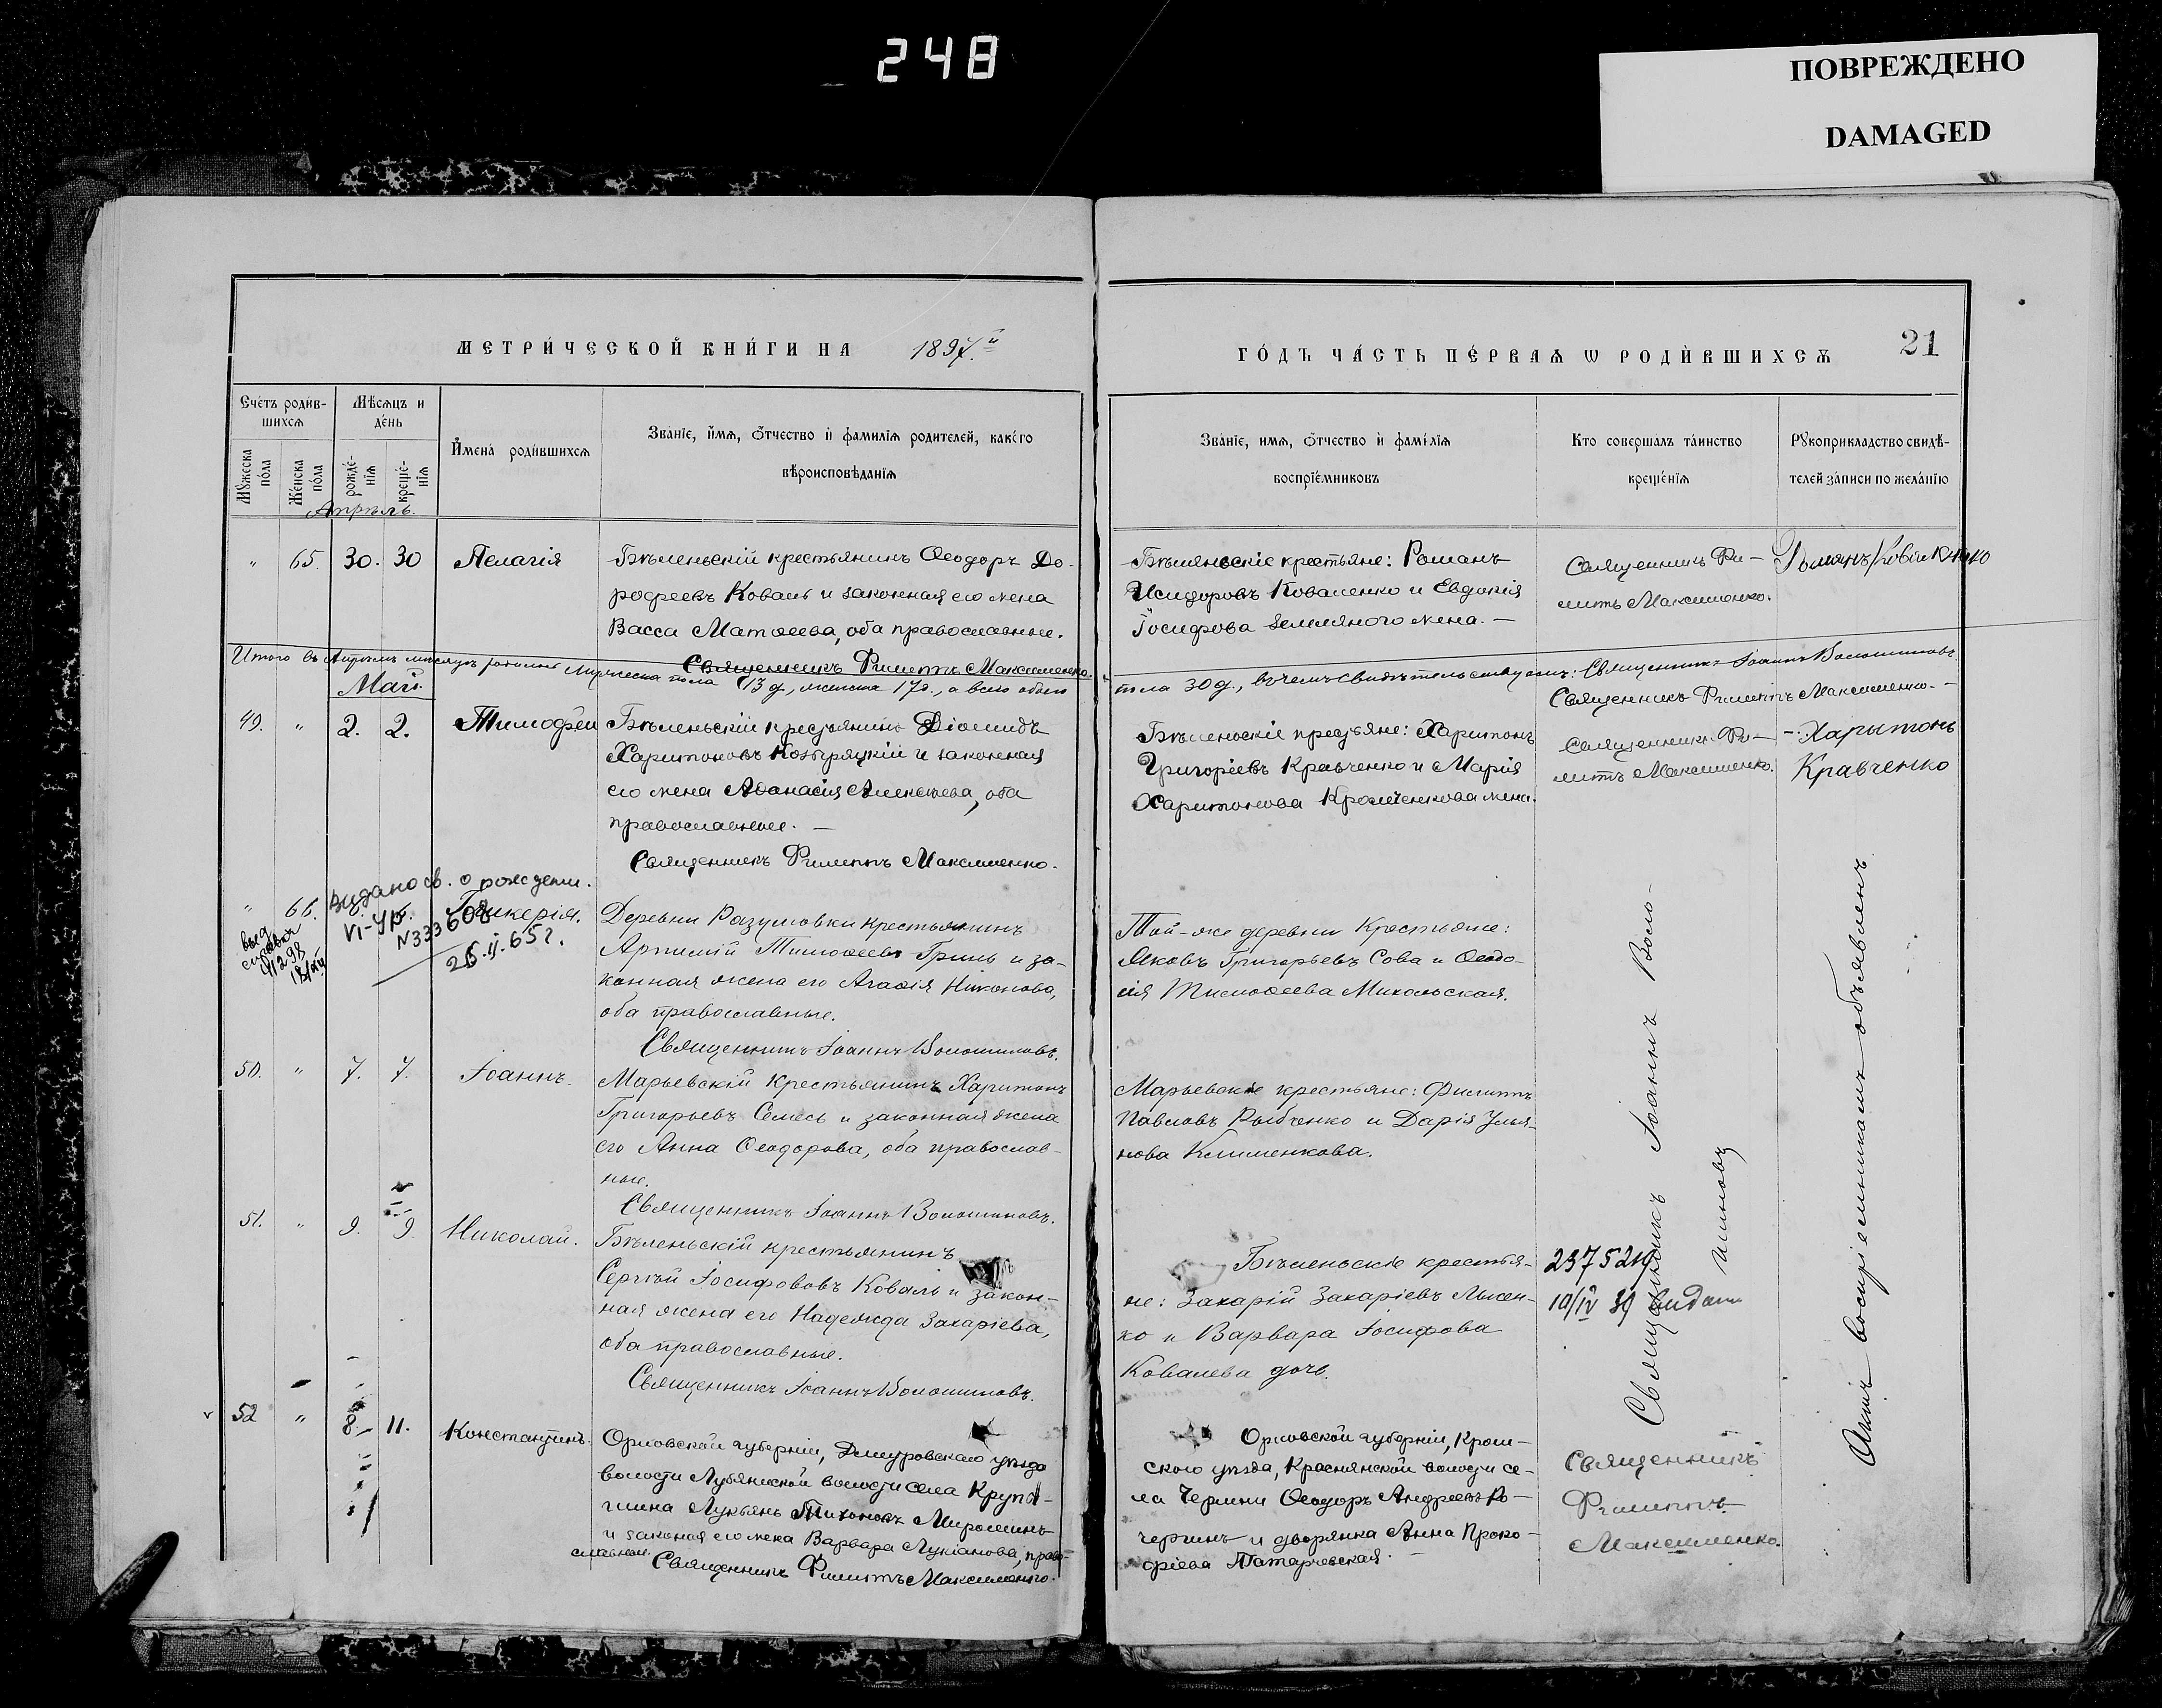 248
ПОВРЕЖДЕНО
DAMAGED
МЕТРИ́ЧЕСКОЙ КНИ́ГИ НА 1897.й
ГО́ДЪ ЧА́СТЬ ПЕ́РВАѦ Ѡ РОДИ́ВШИХСѦ
21
Сче́тъ роди́в-
шихсѧ
Мѣ́сѧцъ и
де́нь
Мꙋ́жеска
по́ла
Же́нска
по́ла
рожде́-
нїѧ
креще́-
нїѧ
И҆мена́ роди́вшихсѧ
Зва́нїе, и҆́мѧ, о҆́тчество и҆ фами́лїѧ роди́телей, како́го
вѣроисповѣ́данїѧ
Зва́нїе, имѧ, о҆́тчество и҆ фамі́лїѧ
воспрїе́мниковъ
Кто соверша́лъ та́инство
креще́нїѧ
Рꙋкоприкла́дство свидѣ́-
телей за́писи по жела́нїю
Апрѣль.
" 65. 30. 30 Пелагія
Бѣленьскій крестьянинъ Ѳеодоръ До-
рофеевъ Коваль и законная его жена
Васса Матѳеева, оба православные.
Священникъ Филиппъ Максименко.
Бѣленьскіе крестьяне: Романъ
Исидоровъ Коваленко и Евдокія
Іосифова Земляного жена. —
Священникъ Фи-
липпъ Максименко.
Романъ
Итого въ Апрѣлѣ мѣсяцѣ родилось мужеска пола 13 д., женска 17 д., а всего обоего
пола 30 д., въ чемъ свидѣтельствуемъ: Священникъ Іоаннъ Волошиновъ
Священникъ Филиппъ Максименко. —
Май.
49. " 2. 2. Тимофей
Бѣленьскій крестьянинъ Діомидъ
Харитоновъ Козыряцкій и законная
его жена Аѳанасія Алексѣева, оба
православные. —
Священникъ Филиппъ Максименко.
Бѣленьскіе крестьяне: Харитонъ
Григоріевъ Кравченко и Марія
Харитонова жена.
Священникъ Фи-
липпъ Максименко.
Харытонъ
Кравченко
Видано св. о рожден.
VI-УР.
N333608
26.II.65г.
выд
справка
18/XII
" 66. Гликерія.
Деревни Разумовки крестьянинъ
Артемій Тимоѳеевъ Гринь и за-
конная жена его Агаѳія Никонова,
оба православные.
Священникъ Іоаннъ Волошиновъ.
Той-же деревни крестьяне:
Яковъ Григорьевъ Сова и Ѳеодо-
сія Тимоѳеева Михольская.
50. " 7. 7. Іоаннъ.
Марьевскій крестьянинъ Харитонъ
Григорьевъ Семесь и законная жена
его Анна Ѳеодорова, оба православ-
ные.
Священникъ Іоаннъ Волошиновъ.
Марьевскіе крестьяне: Филиппъ
Павловъ Рыбченко и Дарія Улья-
нова Клименкова.
51. " 9. 9. Николай.
Бѣленьскій крестьянинъ
Сергѣй Іосифововъ Коваль и закон-
ная жена его Надежда Захаріева,
оба православные.
Священникъ Іоаннъ Волошиновъ.
Бѣленьскіе крестья-
не: Захарій Захаріевъ Лысен-
ко и Варвара Іосифова
Ковалева дочь.
10/IV 39 видано
Священникъ Іоаннъ Воло-
шиновъ
Актъ воспріемникамъ объявленъ
52 " 8. 11. Константинъ.
Орловской губерніи, Дмитровскаго уѣзда
волости Лубянской волости села Крупы-
шина Лукьянъ Тихоновъ Мирошинъ
и законная его жена Варвара Лукіанова, право-
славные.
Священникъ Филиппъ Максименко.
Орловской губерніи, Кром-
ского уѣзда, Краснянской волости се-
ла Чермни Ѳеодоръ Андреевъ Ко-
чергинъ и дворянка Анна Проко-
фіева Татарчевская.
Священникъ
Филиппъ
Максименко.